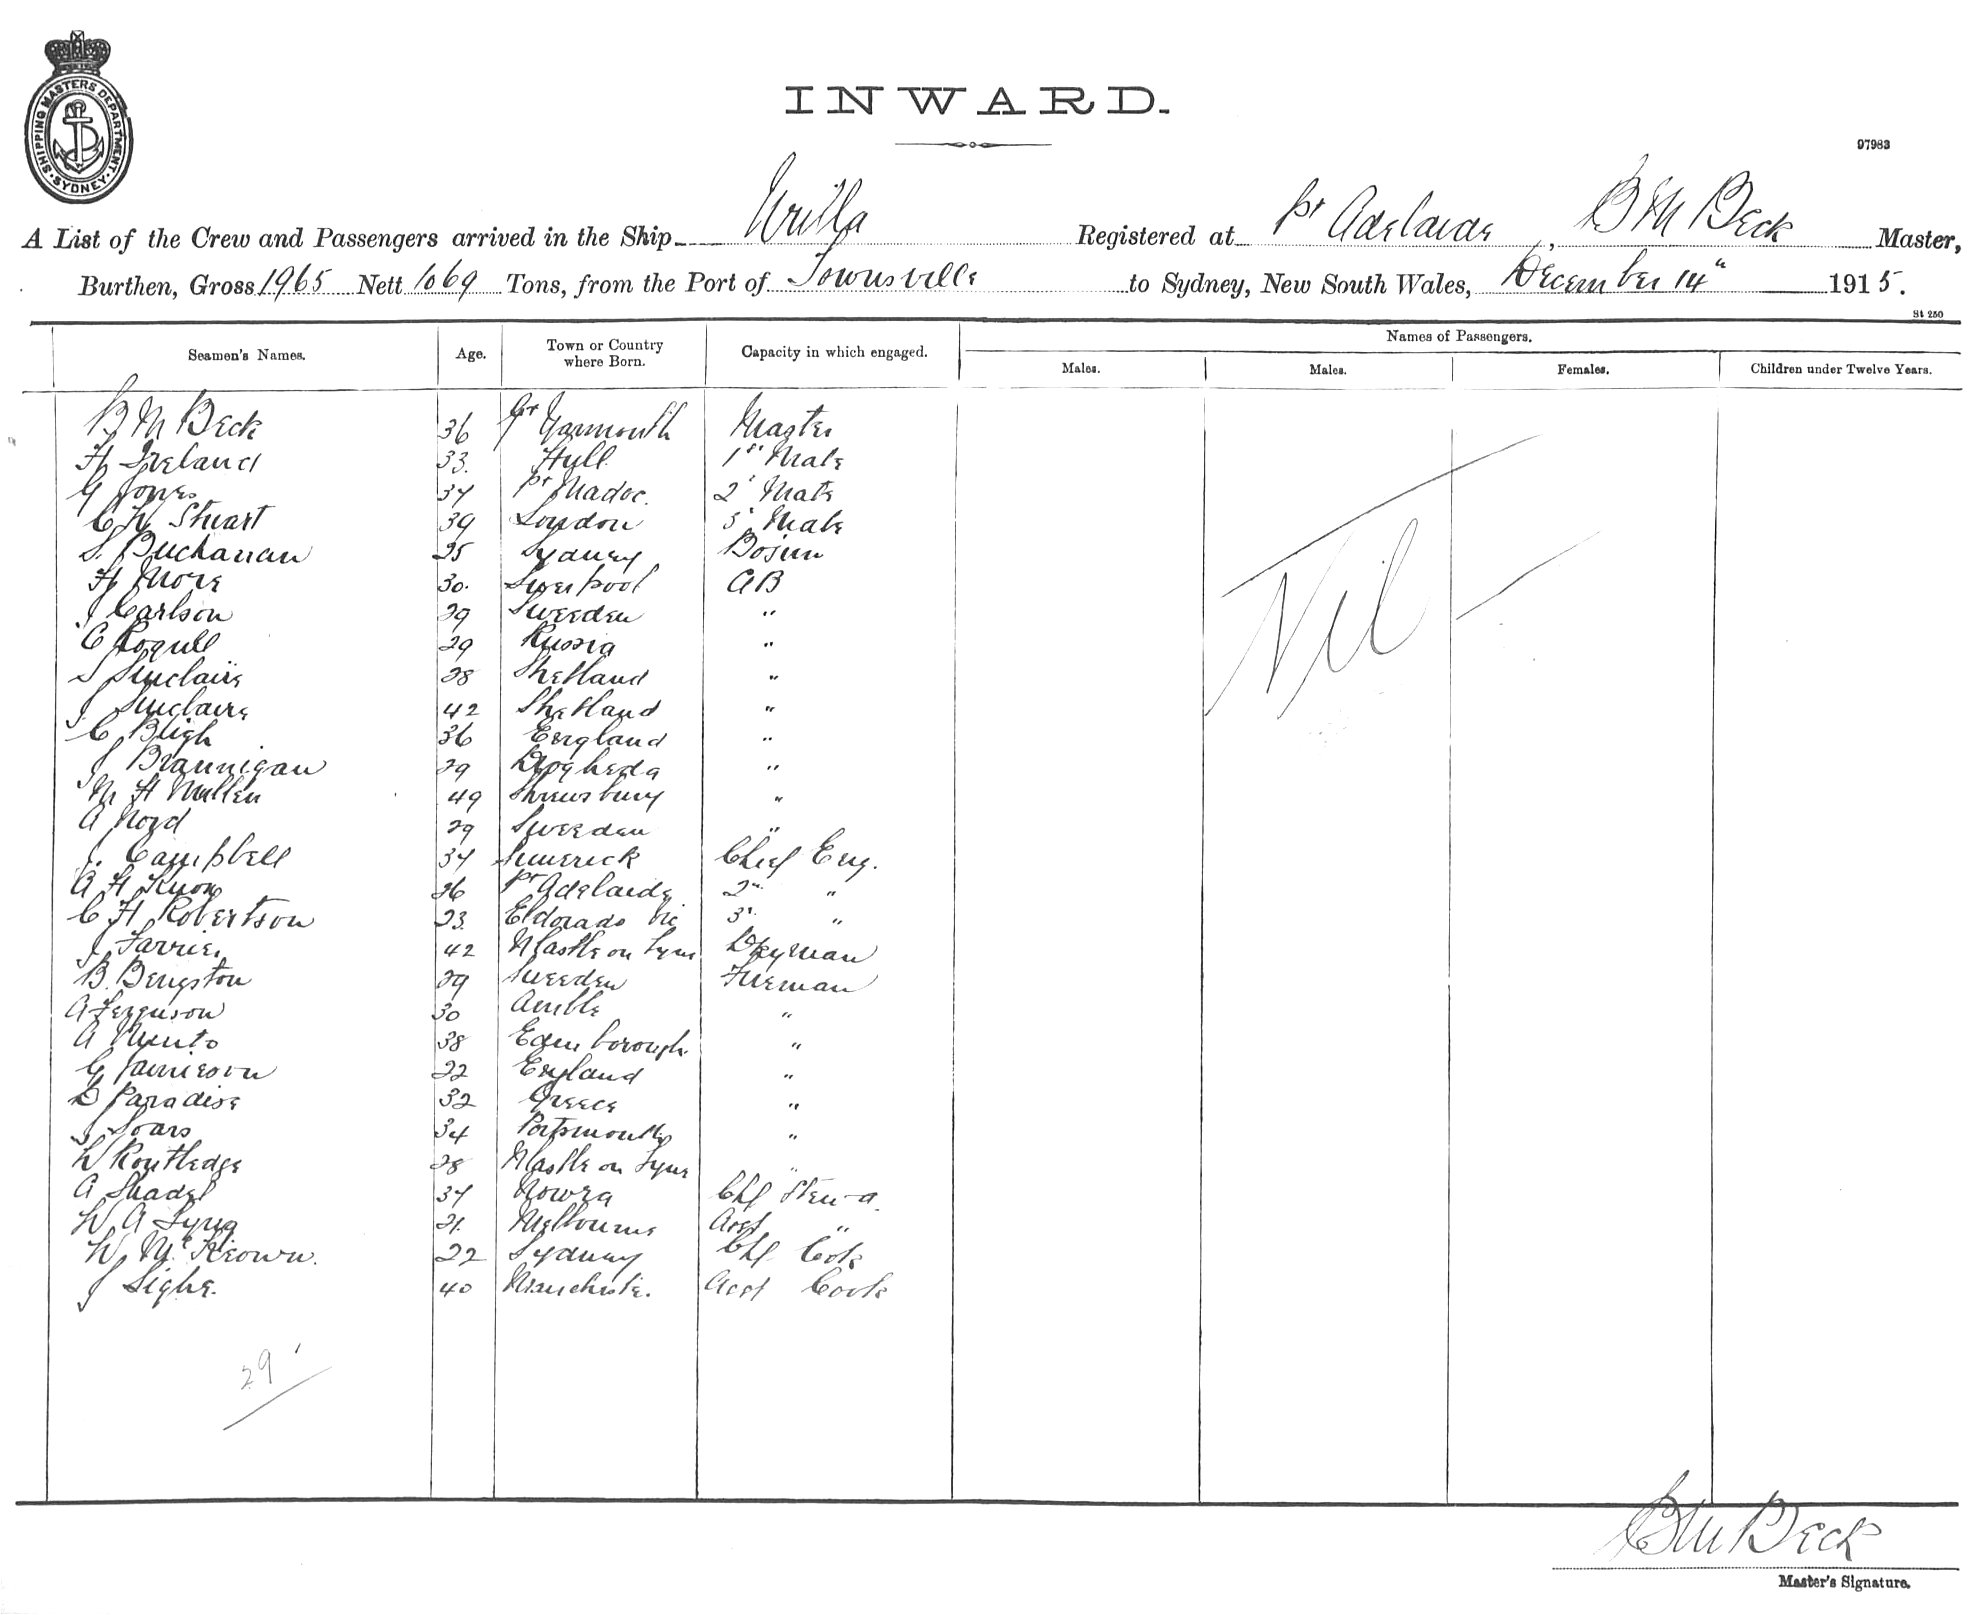 SHIPPING MASTERS DEPARTMENT. SYDNEY.
INWARD.
97983
A List of the Crew and Passengers arrived in the Ship Urilla Registered at Pt Adelaide, B M Beck Master,
Burthen, Gross 1965 Nett 1069 Tons, from the Port of Townsville to Sydney, New South Wales, December 14" 1915.
St 250
Seamen's Names. Age. Town or Country where Born. Capacity in which engaged. Names of Passengers.
Males. Males. Females. Children under Twelve Years.
B M Beck 36 Gt Yarmouth Master
H Ireland 33. Hull 1st Mate
G Jones 34 Pt Madoc. 2' Mate
C W Stuart 39 London 3' Mate
S. Buchanan 25 Sydney Bosun
H More 30. Liverpool AB
J Carlson 29 Sweeden "
C Rogull 29 Russia "
S Sinclaire 28 Shetland "
J Sinclaire 42 Shetland "
C Bligh 36 England "
J Brannigan 29 Drogheda "
M H Mullen 49 Shrewsbury "
A Nord 29 Sweeden "
J Campbell 34 Limerick Chief Eng.
A H Knox 26 Pt Adelaide 2" "
C H Robertson 23. Eldorado Vic 3' "
J Farrier 42 NCastle on Tyne Dkyman
B. Bengston 29 Sweeden Fireman
A Ferguson 30 Amble "
A Minto 38 Edenborough "
G Jamieson 22 England "
D Paradise 32 Greece "
J Soars 34 Portsmouth "
W Routledge 28 NCastle on Tyne "
A Shadel 34 Nowra Chf Stew-d.
W A Lyng 21. Melbourne Asst "
W McKeown. 22 Sydney Chf Cook
J Sighe. 40 Manchester. Asst Cook
Nil
29
B M Beck
Master's Signature.